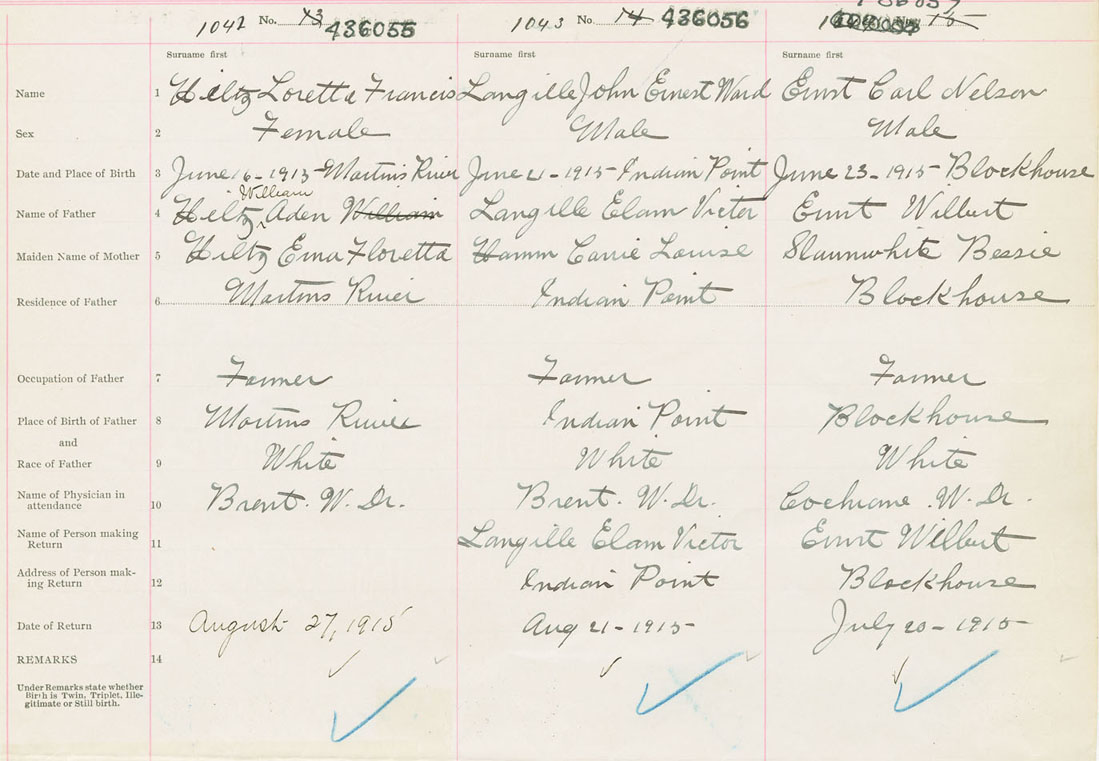 1042 No. 13 436055 1043 No. 14 436056 436057
Surname first Surname first Surname first
Name 1 Hiltz Loretta Francis Langille John Ernest Ward Ernst Carl Nelson
Sex 2 Female Male Male
Date and Place of Birth 3 June 16-1915-Martins River June 21-1915-Indian Point June 23-1915-Blockhouse
William
Name of Father 4 Hiltz, Aden William Langille Elam Victor Ernst Wilbert
Maiden Name of Mother 5 Hiltz Ema Floretta Hamm Carrie Louise Slaunwhite Bessie
Residence of Father 6 Martins River Indian Point Blockhouse
Occupation of Father 7 Farmer Farmer Farmer
Place of Birth of Father 8 Martins River Indian Point Blockhouse
and
Race of Father 9 White White White
Name of Physician in
attendance 10 Brent. W. Dr. Brent. W. Dr. Cochrane. W. Dr.
Name of Person making
Return 11 Langille Elam Victor Ernst Wilbert
Address of Person mak-
ing Return 12 Indian Point Blockhouse
Date of Return 13 August 27, 1915 Aug 21-1915 July 20-1915
REMARKS 14
Under Remarks state whether
Birth is Twin, Triplet, Ille-
gitimate or Still birth.